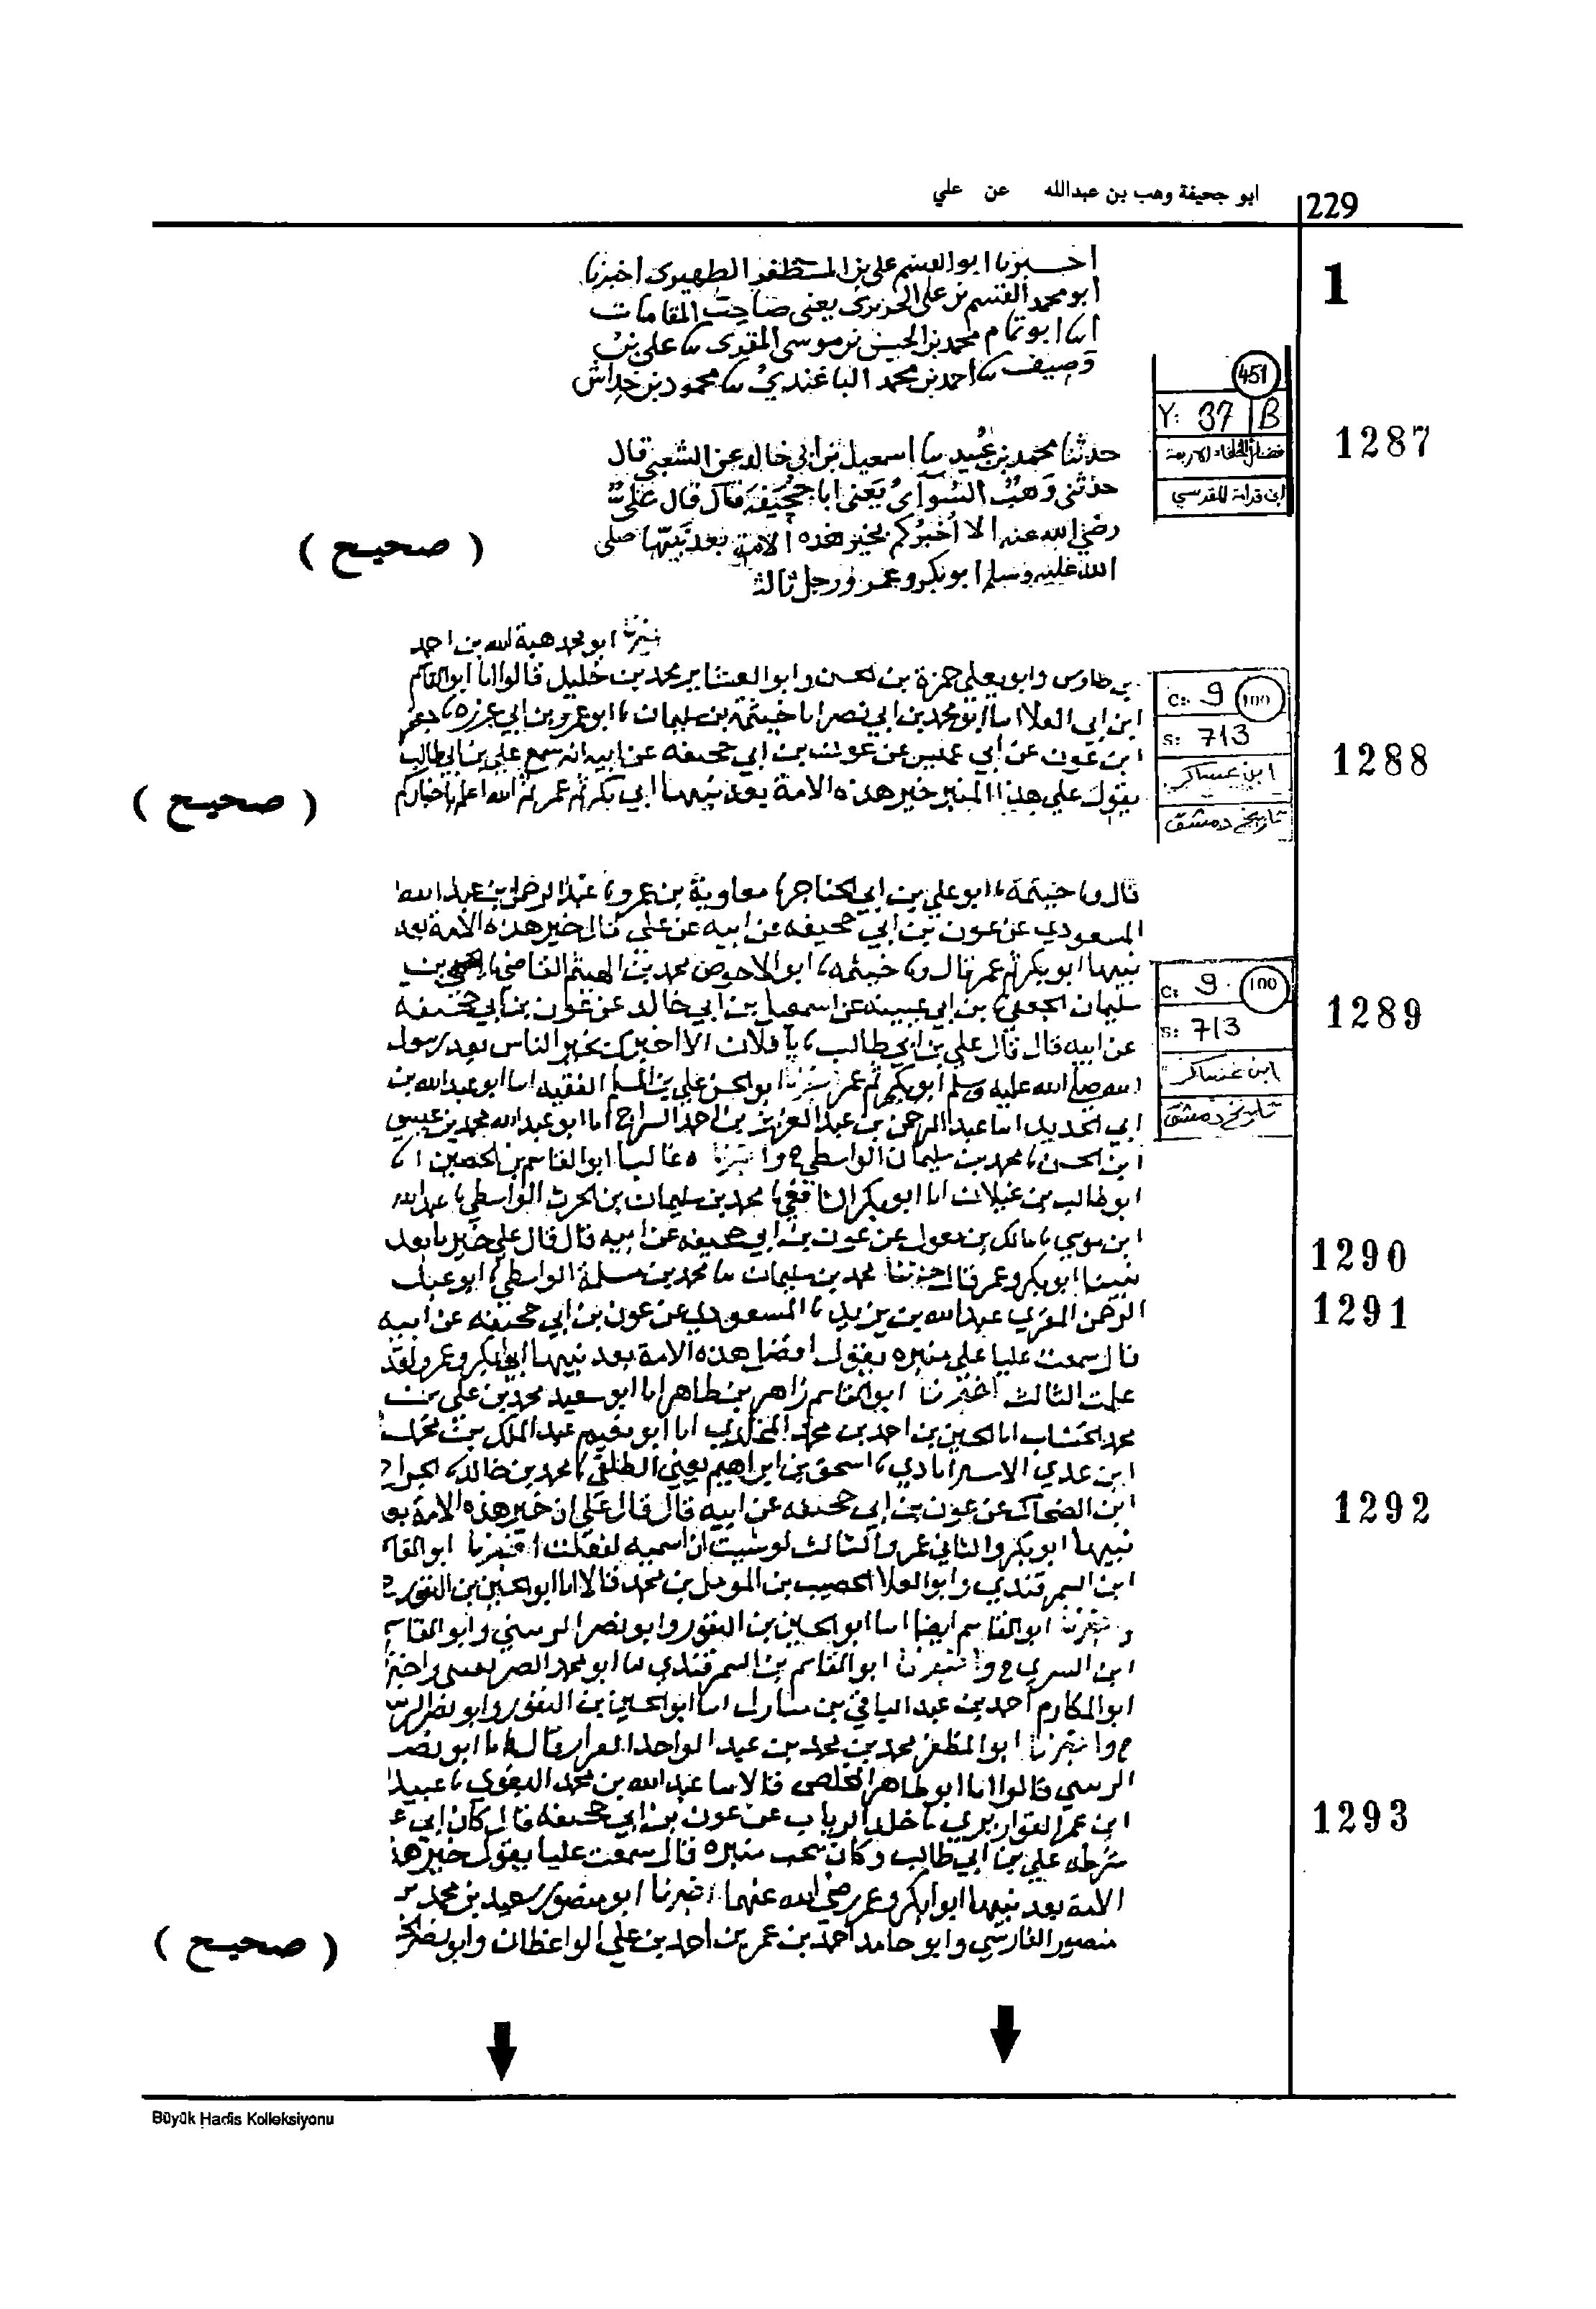 ابو جحيفة وهب بن عبدالله عن علي
229
1
اخبرنا ابو القسم علي بن المظفر الظهيري اخبرنا
ابو محمد القسم بن علي الحريري يعني صاحب المقامات
ابنا ابو تمام محمد بن الحسن بن موسى المقري نا علي بن
وصيف نا احمد بن محمد الباغندي نا محمود بن خداش
451
Y: 37 B
فضائل الخلفاء الاربعة
ابن قدامة المقدسي
1287
حدثنا محمد بن عبيد نا اسمعيل بن ابي خالد عن الشعبي قال
حدثني وهب السوائي يعني ابا جحيفة قال قال علي
رضي الله عنه الا اخبركم بخير هذه الامة بعد نبيها صلى
الله عليه وسلم ابو بكر وعمر ورجل ثالث
( صحيح )
ابو محمد هبة الله بن احمد
بن طاوس وابو يعلى حمزة بن الحسن وابو العشاير محمد بن خليل قالوا انا ابو القاسم
ابن ابي العلا انا ابو محمد بن ابي نصر انا خيثمة بن سليمان نا ابو عمرو بن ابي غرزة نا جعفر
ابن عون عن ابي عميس عن عون بن ابي جحيفة عن ابيه انه سمع علي بن ابي طالب
يقول على هذا المنبر خير هذه الامة بعد نبيها ابي بكر ثم عمر ثم الله اعلم باخباركم
c: 9 100
s: 713
ابن عساكر
تاريخ دمشق
1288
( صحيح )
قال ونا خيثمة نا ابو علي بن ابي الحناجر نا معاوية بن عمرو نا عبد الرحمن بن عبد الله
المسعودي عن عون بن ابي جحيفة عن ابيه عن علي قال خير هذه الامة بعد
نبيها ابو بكر ثم عمر قال ونا خيثمة نا ابو الاحوص محمد بن الهيثم القاضي نا يحيى بن
سليمان الجعفي نا بن ابي عبيدة عن اسمعيل بن ابي خالد عن عون بن ابي جحيفة
عن ابيه قال قال علي بن ابي طالب يا فلان الا اخبرك بخير الناس بعد رسول
الله صلى الله عليه وسلم ابو بكر ثم عمر ابو الحسن علي بن المسلم الفقيه انا ابو عبد الله بن
ابي الحديد انا عبد الرحمن بن عبد العزيز بن احمد السراج انا ابو عبد الله محمد بن عيسى
ابن الحسن نا محمد بن سليمان الواسطي ح واخبرنا ه عاليا ابو القاسم بن الحصين انا
ابو طالب بن غيلان انا ابو بكر الشافعي نا محمد بن سليمان بن الحرث الواسطي نا عبد الله
c: 9 100
s: 713
ابن عساكر
تاريخ دمشق
1289
ابن موسى نا مالك بن مغول عن عون بن ابي جحيفة عن ابيه قال قال علي خيرنا بعد
1290
نبينا ابو بكر وعمر قال وحدثنا محمد بن سليمان نا محمد بن مسلمة الواسطي نا ابو عبد
الرحمن المقري عبد الله بن يزيد نا المسعودي عن عون بن ابي جحيفة عن ابيه
1291
قال سمعت عليا على منبره يقول افضل هذه الامة بعد نبيها ابي بكر وعمر ولقد
علمت الثالث اخبرنا ابو القاسم زاهر بن طاهر انا ابو سعيد محمد بن علي بن
محمد الخشاب انا الحسين بن احمد بن محمد المخلدي انا ابو نعيم عبد الملك بن محمد
ابن عدي الاستراباذي نا اسحق بن ابراهيم يعني الطلقي نا محمد بن خالد نا الجراح
ابن الضحاك عن عون بن ابي جحيفة عن ابيه قال قال علي ان خير هذه الامة بعد
1292
نبيها ابو بكر والثاني عمر والثالث لو شيت ان اسميه لفعلت اخبرنا ابو القاسم
ابن السمرقندي وابو العلا الخصيب بن المومل بن محمد قالا انا ابو الحسين بن النقور ح
واخبرنا ابو القاسم ايضا انا ابو الحسين بن النقور وابو نصر الزينبي وابو القاسم
ابن البسري ح واخبرنا ابو القاسم بن السمرقندي نا ابو محمد الصريفيني واخبرنا
ابو المكارم احمد بن عبد الباقي بن مبارك انا ابو الحسين بن النقور وابو نصر الزينبي
ح واخبرنا ابو المظفر محمد بن محمد بن عبد الواحد قال انا ابو نصر
الزينبي قالوا انا ابو طاهر المخلص قالا نا عبد الله بن محمد البغوي نا عبيد الله
ابن عمر القواريري نا خلد الزيات عن عون بن ابي جحيفة قال كان ابي على
1293
شرطة علي بن ابي طالب وكان تحت منبره قال سمعت عليا يقول خير هذه
الامة بعد نبيها ابو بكر وعمر رضي الله عنهما اخبرنا ابو منصور سعيد بن محمد بن
منصور الفارسي وابو حامد احمد بن عمر بن احمد بن علي الواعظان وابو نصر
( صحيح )
Büyük Hadis Kolleksiyonu